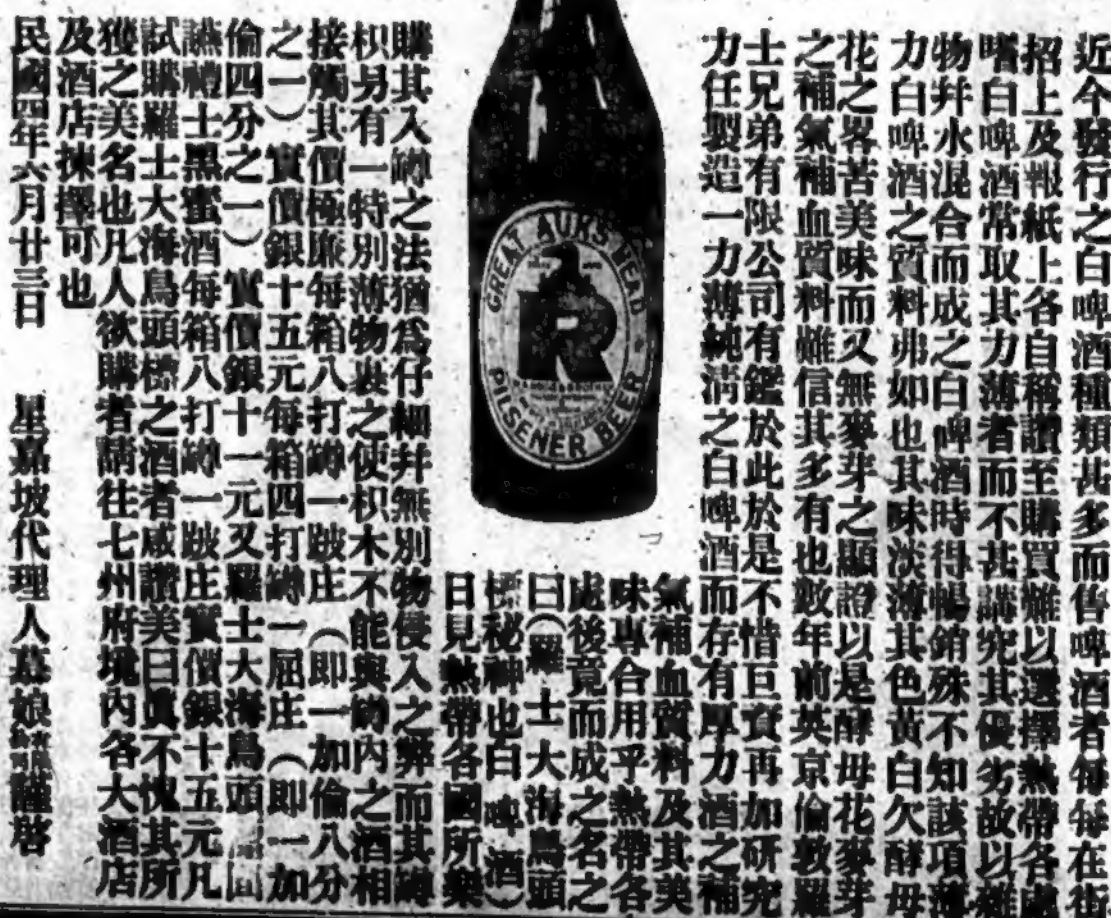 近今發行之白啤酒種類甚多而售啤酒者每每在街
招上及報紙上各自稱讚至購買難以選擇熱帶各處
嗜白啤酒常取其力薄者而不甚講究其優劣故以雜
物幷水混合而成之白啤酒時得暢銷殊不知該項薄
力白啤酒之質料弗如也其味淡薄其色黃白欠酵母
花之畧苦美味而又無麥芽之顯證以是酵母花麥芽
之補氣補血質料雖信其多有也數年前英京倫敦羅
士兄弟有限公司有鑑於此於是不惜巨資再加研究
力任製造一力薄純淸之白啤酒而存有厚力酒之補
氣補血質料及其美
味專合用乎熱帶各
處後竟而成之名之
曰(羅士大海鳥頭
標秘神也白啤酒)
日見熱帶各國所樂
GREAT AUKS HEAD
R
PILSENER BEER
購其入罇之法猶爲仔細幷無別物侵入之弊而其罇
枳另有一特別薄物裝之使枳木不能與罇內之酒相
接觸其價極廉每箱八打罇一跛庄(即一加倫八分
之一)實價銀十五元每箱四打罇一屈庄(即一加
倫四分之一)實價銀十一元又羅士大海鳥頭
讌禮士黑蜜酒每箱八打罇一跛庄實價銀十五元凡
試購羅士大海鳥頭標之酒者咸讚美曰眞不愧其所
獲之美名也凡人欲購者請往七州府境內各大酒店
及酒店揀擇可也
民國四年六月廿三日 星嘉坡代理人慕娘 謹啓